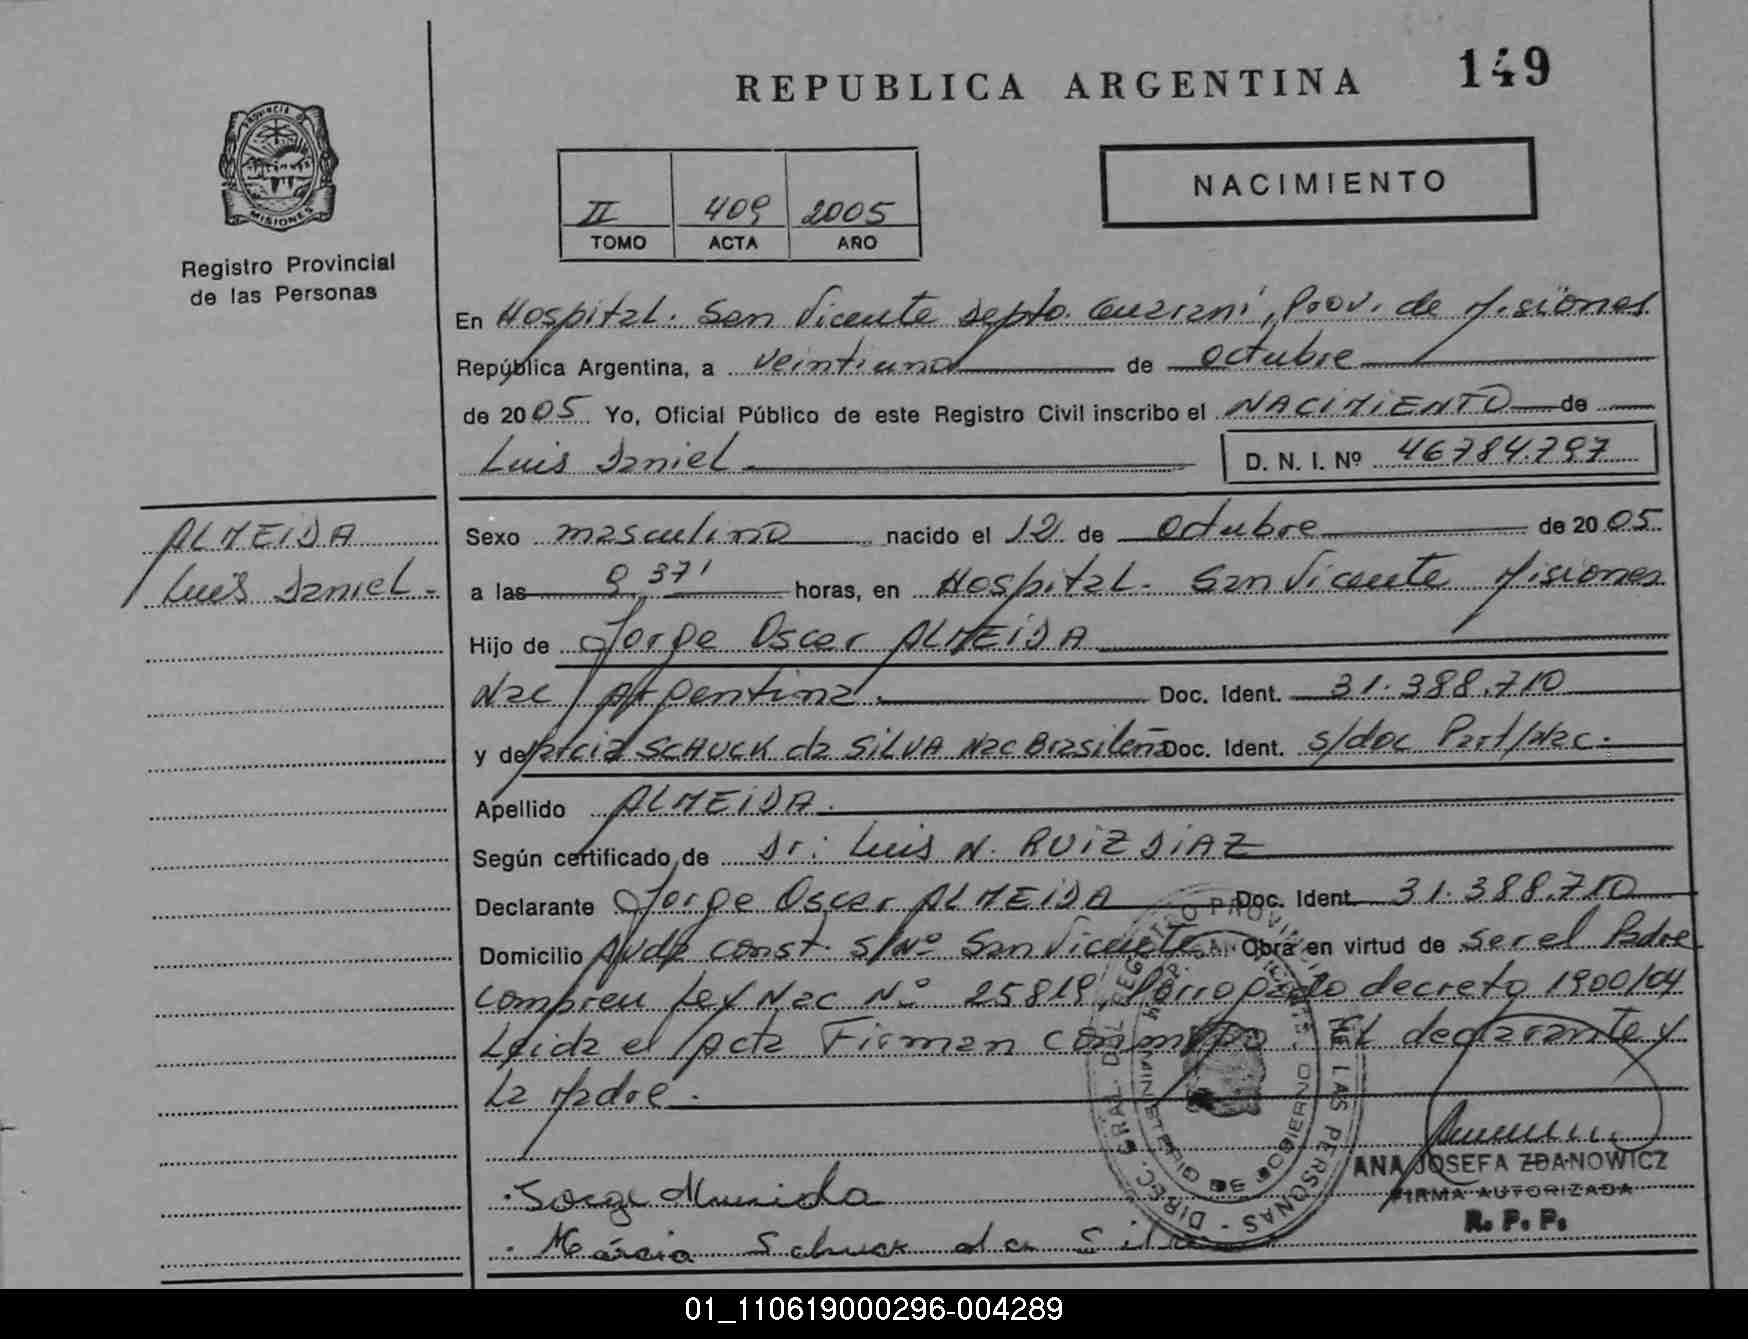 REPUBLICA ARGENTINA
149
PROVINCIA DE
MISIONES
Registro Provincial
de las Personas
II 409 2005
TOMO ACTA AÑO
NACIMIENTO
En Hospital. San Vicente Depto. Guarani, Prov. de Misiones
República Argentina, a veintiuno de octubre
de 2005 Yo, Oficial Público de este Registro Civil inscribo el NACIMIENTO de
Luis Daniel
D. N. I. Nº 46784.797
ALMEIDA
Luis Daniel
Sexo masculino nacido el 12 de octubre de 2005
a las 8,37' horas, en Hospital. San Vicente Misiones
Hijo de Jorge Oscar ALMEIDA
Nac Argentina. Doc. Ident. 31.388.710
y de Marcia SCHUCK da SILVA Nac Brasileña Doc. Ident. s/doc Part/Nac.
Apellido ALMEIDA.
Según certificado de Dr: Luis N. RUIZ DIAZ
Declarante Jorge Oscar ALMEIDA Doc. Ident. 31.388.710
Domicilio Avda const. s/Nº San Vicente Obra en virtud de ser el Padre
Compren Ley Nac Nº 25819, decreto 1900/04
Leida el Acta Firman conmigo. El declarante y
La Madre.
DIREC. GRAL. DEL REGISTRO PROVINCIAL DE LAS PERSONAS
MINISTERIO DE GOBIERNO
ANA JOSEFA ZDANOWICZ
FIRMA AUTORIZADA
R. P. P.
Jorge Almeida
Márcia Schuck da Silva
01_110619000296-004289